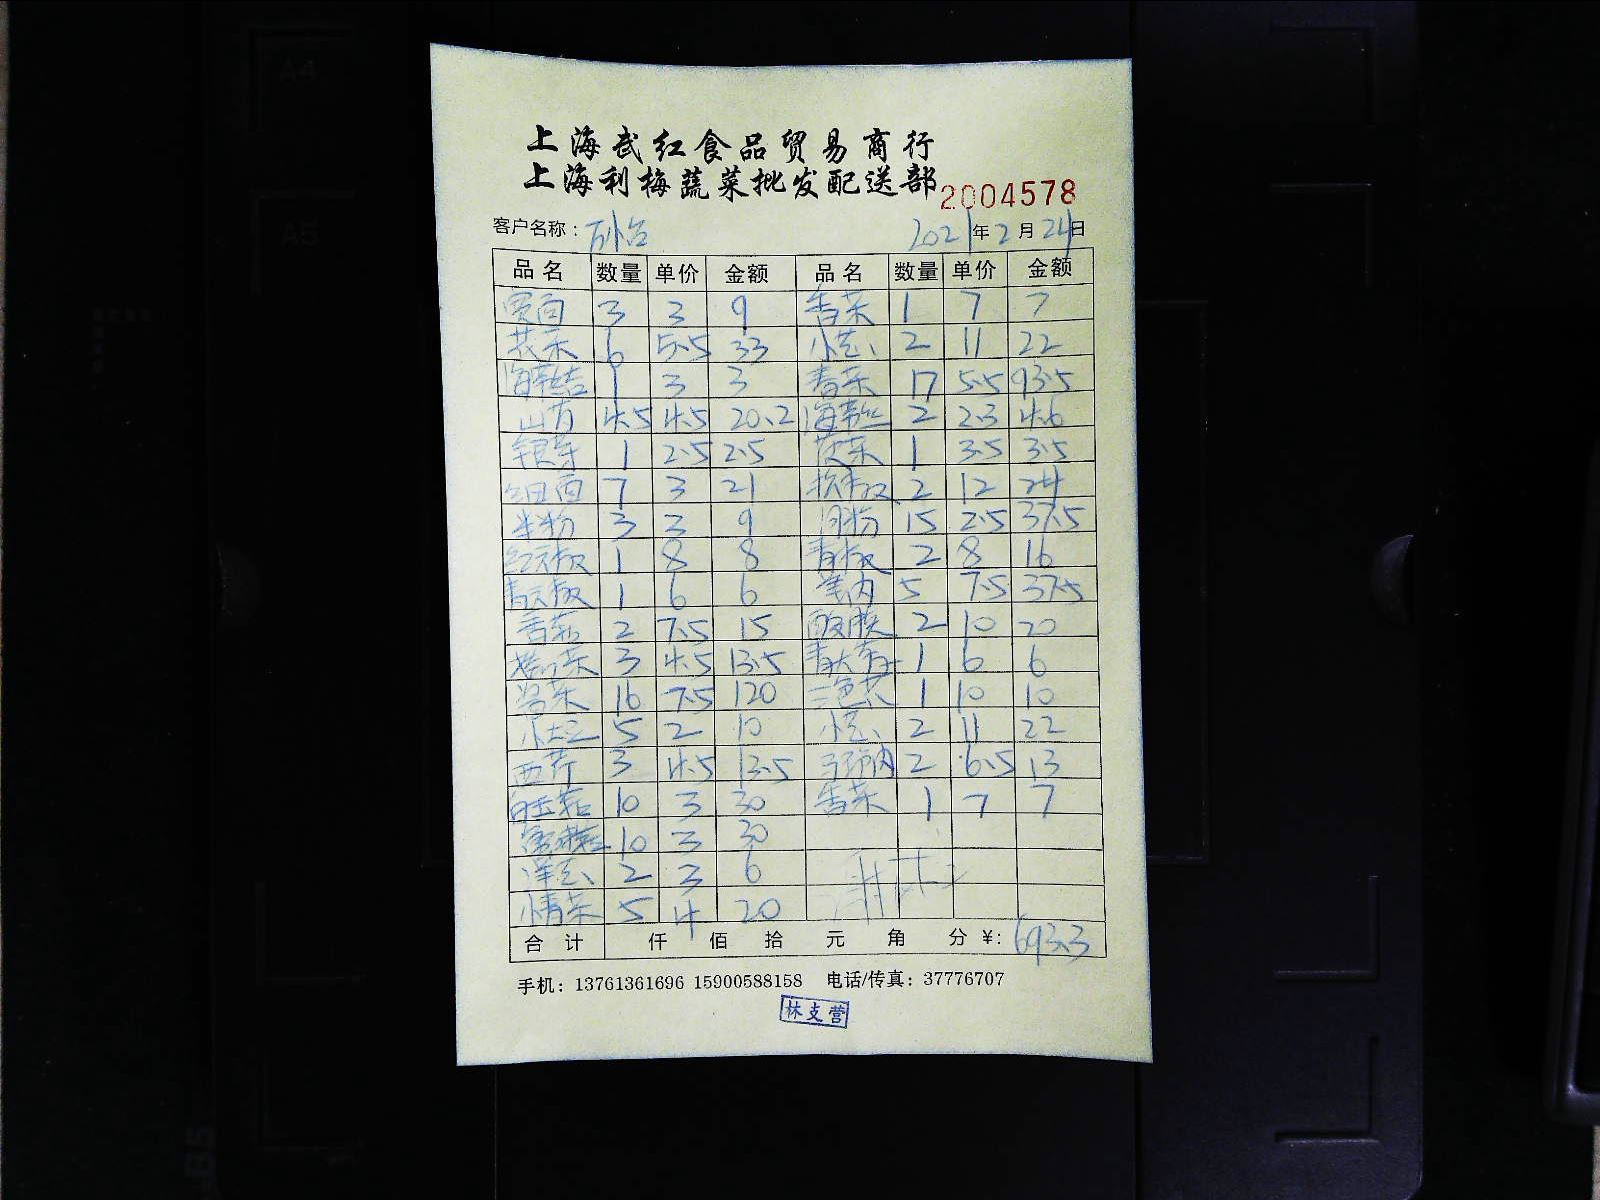 A4
A5
上海武红食品贸易商行
上海利梅蔬菜批发配送部
2004578
客户名称： 2021年2月24日
品名 数量 单价 金额 品名 数量 单价 金额
3 3 9 香菜 1 7 7
花菜 6 5.5 33 小葱 2 11 22
海带结 1 3 3 青菜 17 5.5 93.5
山药 4.5 4.5 20.2 海带丝 2 2.3 4.6
银芽 1 2.5 2.5 1 3.5 3.5
细面 7 3 21 2 12 24
米粉 3 3 9 河粉 15 2.5 37.5
红尖椒 1 8 8 青椒 2 8 16
青尖椒 1 6 6 5 7.5 37.5
香菇 2 7.5 15 2 10 20
3 4.5 13.5 1 6 6
16 7.5 120 三色 1 10 10
5 2 10 小葱 2 11 22
西芹 3 4.5 13.5 2 6.5 13
白玉菇 10 3 30 香菜 1 7 7
10 3 30
洋葱 2 3 6
5 4 20
合计 仟 佰 拾 元 角 分 ¥: 693.3
手机：13761361696 15900588158 电话/传真：37776707
林支营
B5